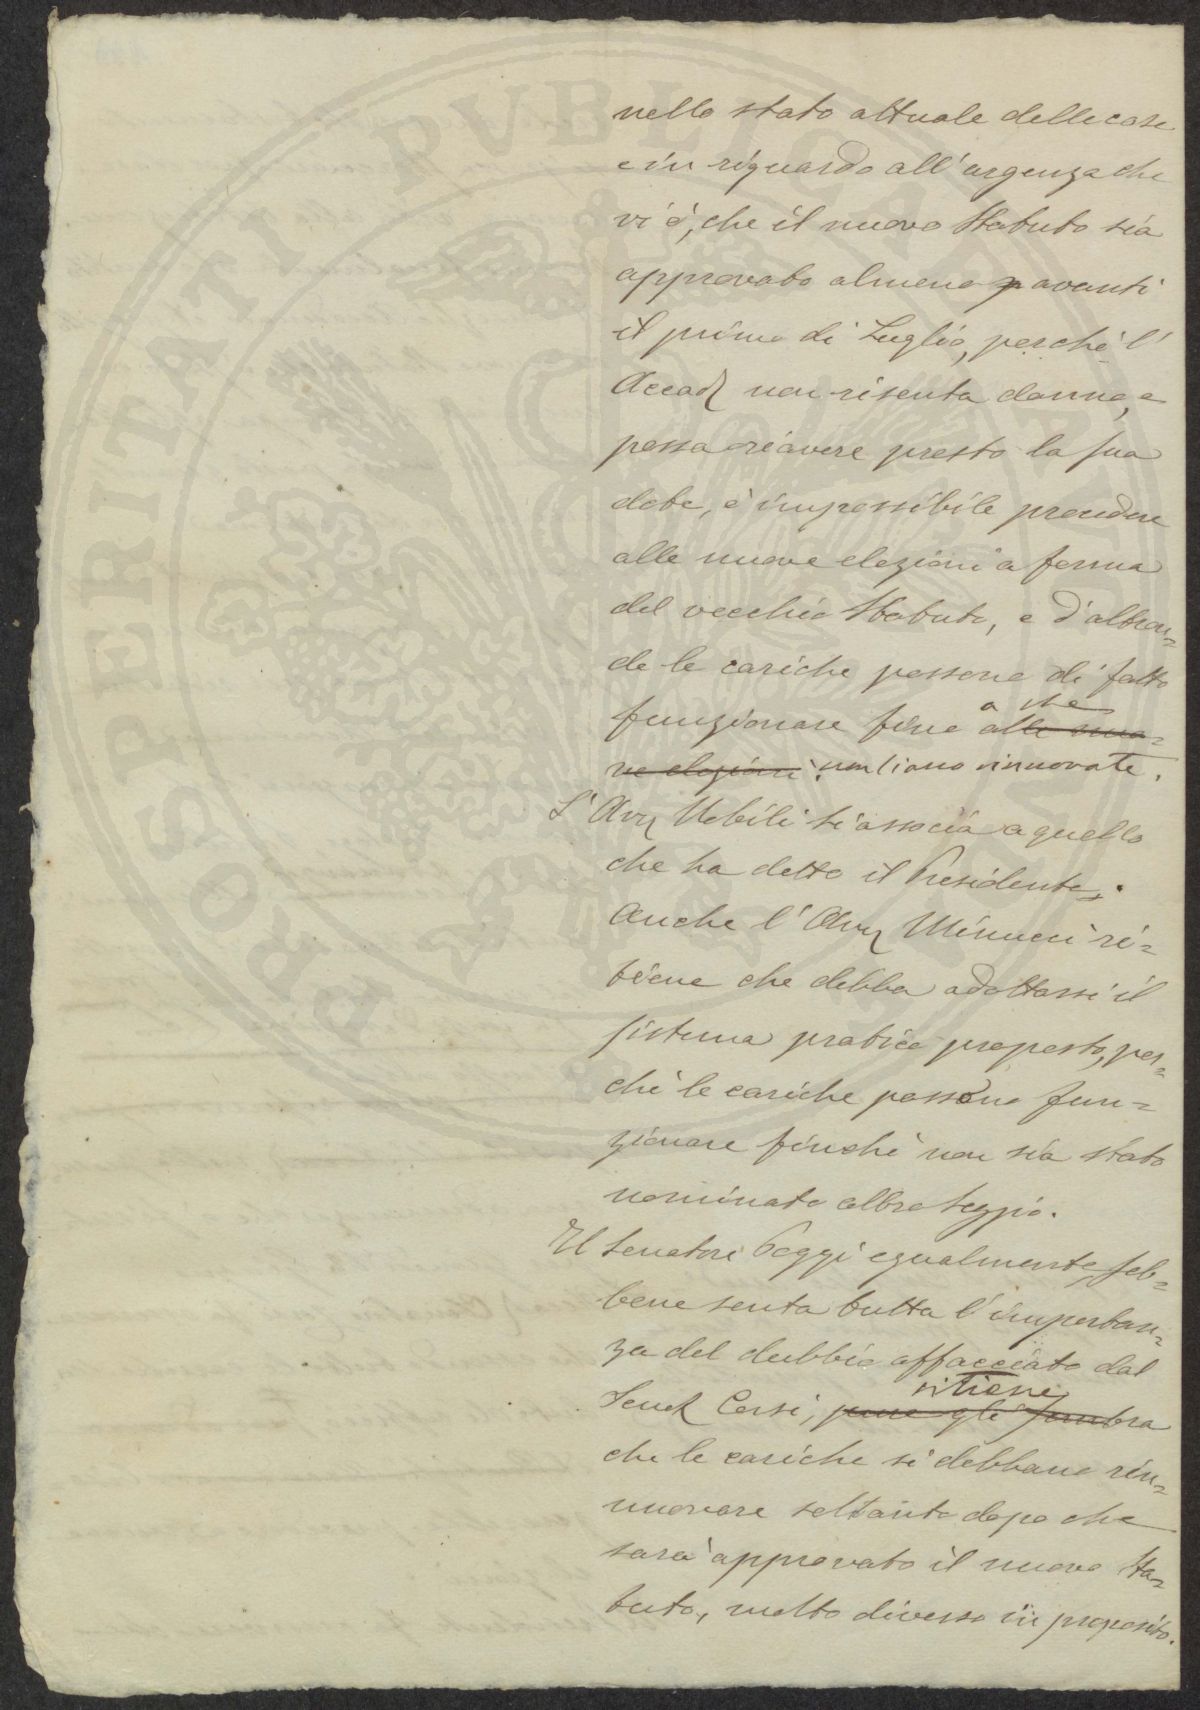 nello stato attuale delle cose
e in riguardo all'urgenza che
vi è, che il nuovo Statuto sia
approvato almeno avanti
il primo di Luglio, perchè l'
Accad. non risenta danno, e
possa riavere presto la sua
dote, è impossibile procedere
alle nuove elezioni a forma
del vecchio Statuto, e d'altron=
de le cariche possono di fatto
a che
funzionare fino alle nuo=
ve elezioni non siano rinnovate.
L'Avv. Nobili si associa a quello
che ha detto il Presidente.
Anche l'Avv. Minucci ri=
tiene che debba adottarsi il
sistema pratico proposto, per=
chè le cariche possono fun=
zionare finchè non sia stato
nominato altro Seggio.
Il Senatore Poggi egualmente, seb=
bene senta tutta l'importan=
za del dubbio affacciato dal
ritiene
Senat. Corsi, pure gli sembra
che le cariche si debbano rin=
nuovare soltanto dopo che
sarà approvato il nuovo Sta=
tuto, molto diverso in proposito.
PROSPERITATI PVBLICAE